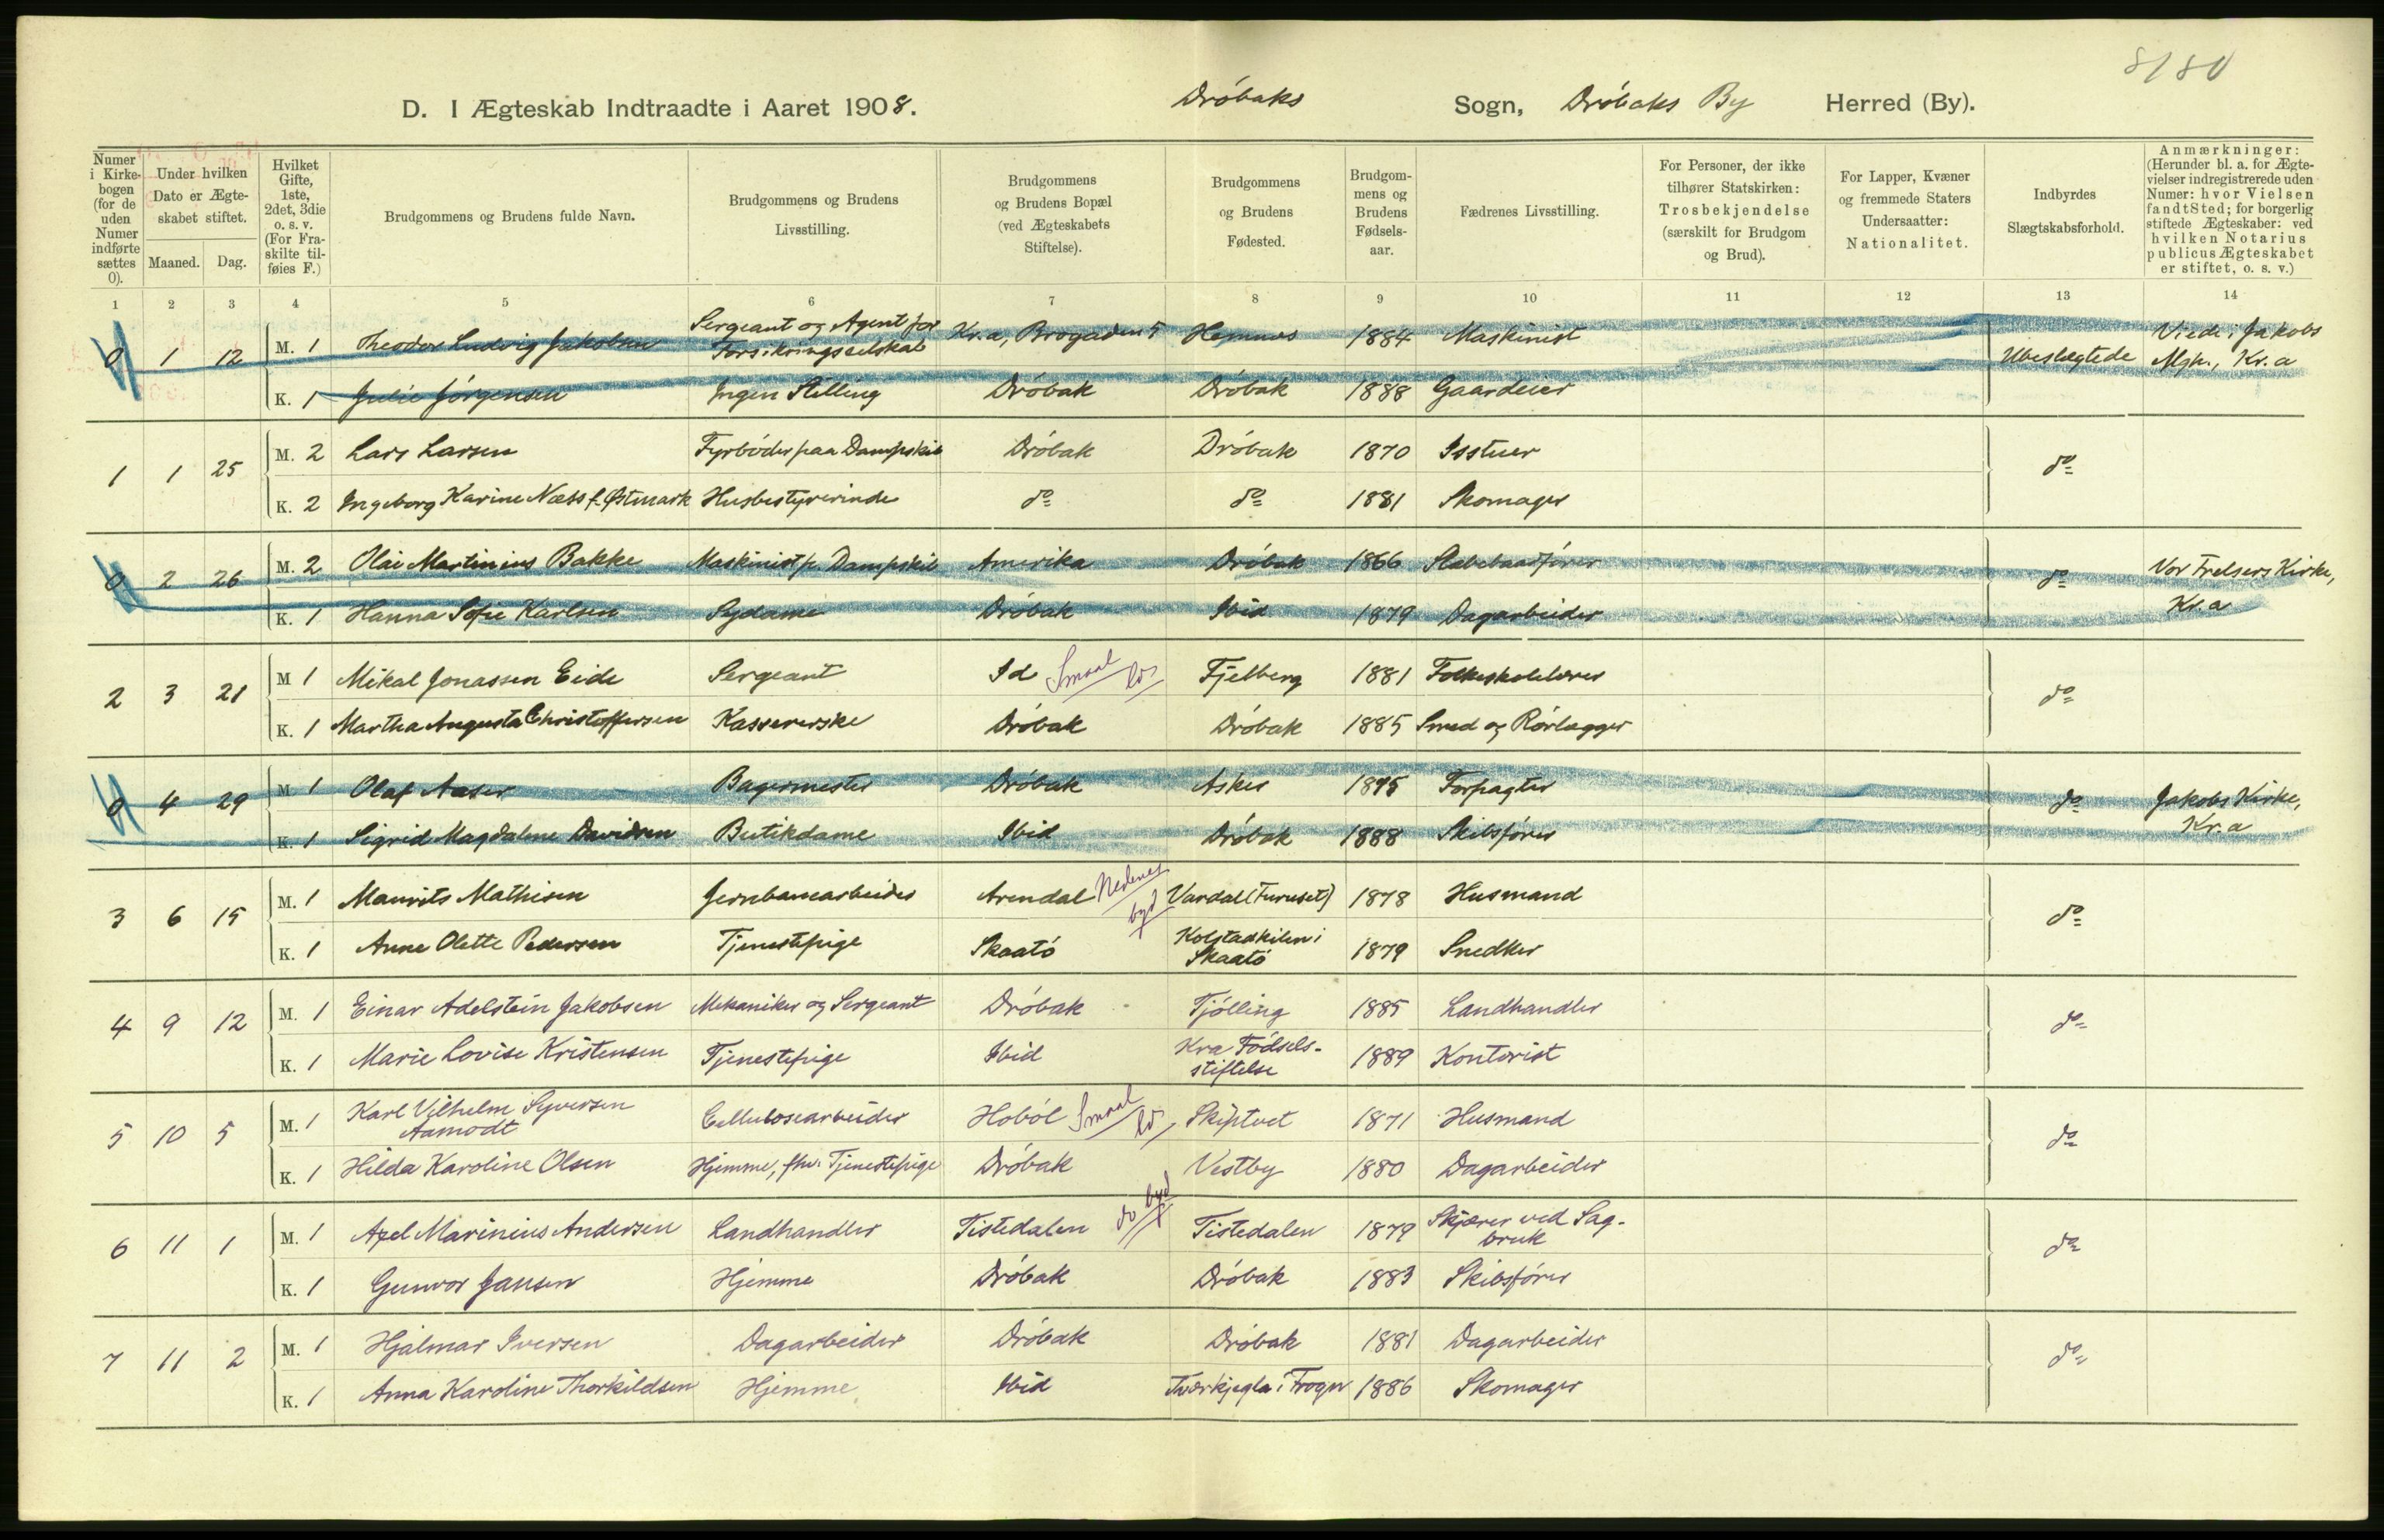 8/80
D. I Ægteskab Indtraadte i Aaret 1908. Drøbaks Sogn, Drøbaks By Herred (By).
Numer i Kirkebogen (for de uden Numer indførte sættes 0).
Under hvilken Dato er Ægteskabet stiftet.
Maaned. Dag.
Hvilket Gifte, 1ste, 2det, 3die o. s. v. (For Fraskilte tilføies F.)
Brudgommens og Brudens fulde Navn.
Brudgommens og Brudens Livsstilling.
Brudgommens og Brudens Bopæl (ved Ægteskabets Stiftelse).
Brudgommens og Brudens Fødested.
Brudgommens og Brudens Fødselsaar.
Fædrenes Livsstilling.
For Personer, der ikke tilhører Statskirken: Trosbekjendelse (særskilt for Brudgom og Brud).
For Lapper, Kvæner og fremmede Staters Undersaatter: Nationalitet.
Indbyrdes Slægtskabsforhold.
Anmærkninger: (Herunder bl. a. for Ægtevielser indregistrerede uden Numer: hvor Vielsen fandt Sted; for borgerlig stiftede Ægteskaber: ved hvilken Notarius publicus Ægteskabet er stiftet, o. s. v.)
1 2 3 4 5 6 7 8 9 10 11 12 13 14
0 1 12 M. 1 Theodor Ludvig Jakobsen Sergeant og Agent for Forsikringsselskab Kr.a, Brogaden 5 Hemnes 1884 Maskinist Ubeslægtede Viede i Jakobs Mgh., Kr.a
K. 1 Julie Jørgensen Ingen Stilling Drøbak Drøbak 1888 Gaardeier
1 1 25 M. 2 Lars Larsen Fyrbøder paa Dampskib Drøbak Drøbak 1870 Isstuer do
K. 2 Ingeborg Karine Næss f. Østmark Husbestyrerinde do do 1881 Skomager
0 2 26 M. 2 Olai Martinius Bakke Maskinist p. Dampskib Amerika Drøbak 1866 Slæbebaadfører do Vor Frelsers Kirke, Kr.a
K. 1 Hanna Sofie Karlsen Sydame Drøbak Ibid 1879 Dagarbeider
2 3 21 M 1 Mikal Jonassen Eide Sergeant Id Smaal Fjelberg 1881 Folkeskolelærer do
K. 1 Martha Augusta Christoffersen Kassererske Drøbak Drøbak 1885 Smed og Rørlægger
0 4 29 M 1 Olaf Aaser Bagermester Drøbak Asker Forpagter do Jakobs Kirke, Kr.a
K. 1 Sigrid Magdalene Davidsen Butikdame Ibid Drøbak 1888 Skibsfører
3 6 15 M. 1 Maurits Mathisen Jernbanearbeider Arendal Nedenes byd Vardal (Furuset) 1878 Husmand do
K. 1 Anne Olette Pedersen Tjenestepige Skaatø Kolstadkilen i Skaatø 1879 Snedker
4 9 12 M. 1 Einar Adelstein Jakobsen Mekaniker og Sergeant Drøbak Tjølling 1885 Landhandler do
K. 1 Marie Lovise Kristensen Tjenestepige Ibid Kra Fødselsstiftelse 1889 Kontorist
5 10 5 M. 1 Karl Vilhelm Syversen Aamodt Cellulosearbeider Hobøl Smaal Skiptvet 1871 Husmand do
K. 1 Hilda Karoline Olsen Hjemme, fhv. Tjenestepige Drøbak Vestby 1880 Dagarbeider
6 11 1 M. 1 Axel Marinius Andersen Landhandler Tistedalen do byd Tistedalen 1879 Skjærer ved Sagbruk do
K. 1 Gunvor Jansen Hjemme Drøbak Drøbak 1883 Skibsfører
7 11 2 M. 1 Hjalmar Iversen Dagarbeider Drøbak Drøbak 1881 Dagarbeider do
K. 1 Anna Karoline Thorkildsen Hjemme Ibid Tværkjegla i Frogn 1886 Skomager